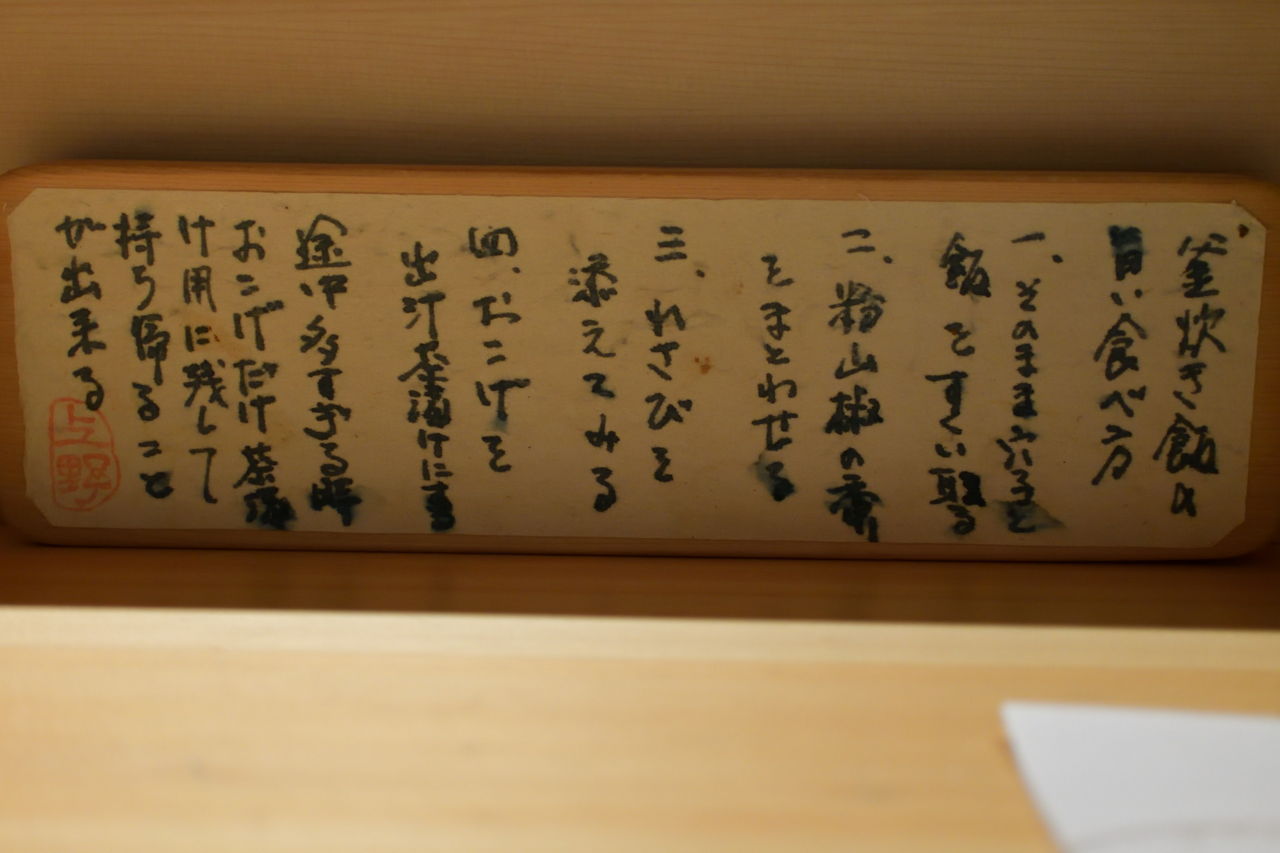 釜炊き飯の
旨い食べ方
一、そのまま
飯をすくい取る
二、粉山椒の香り
をまとわせる
三、わさびを
添えてみる
四、おこげを
出汁茶漬けにする
途中多すぎる時
おこげだけ茶漬
け用に残して
持ち帰ること
が出来る
上野